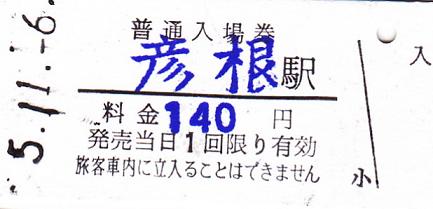 5.11.-6
普通入場券
彦根駅
料金140円
発売当日1回限り有効
旅客車内に立入ることはできません
入
小